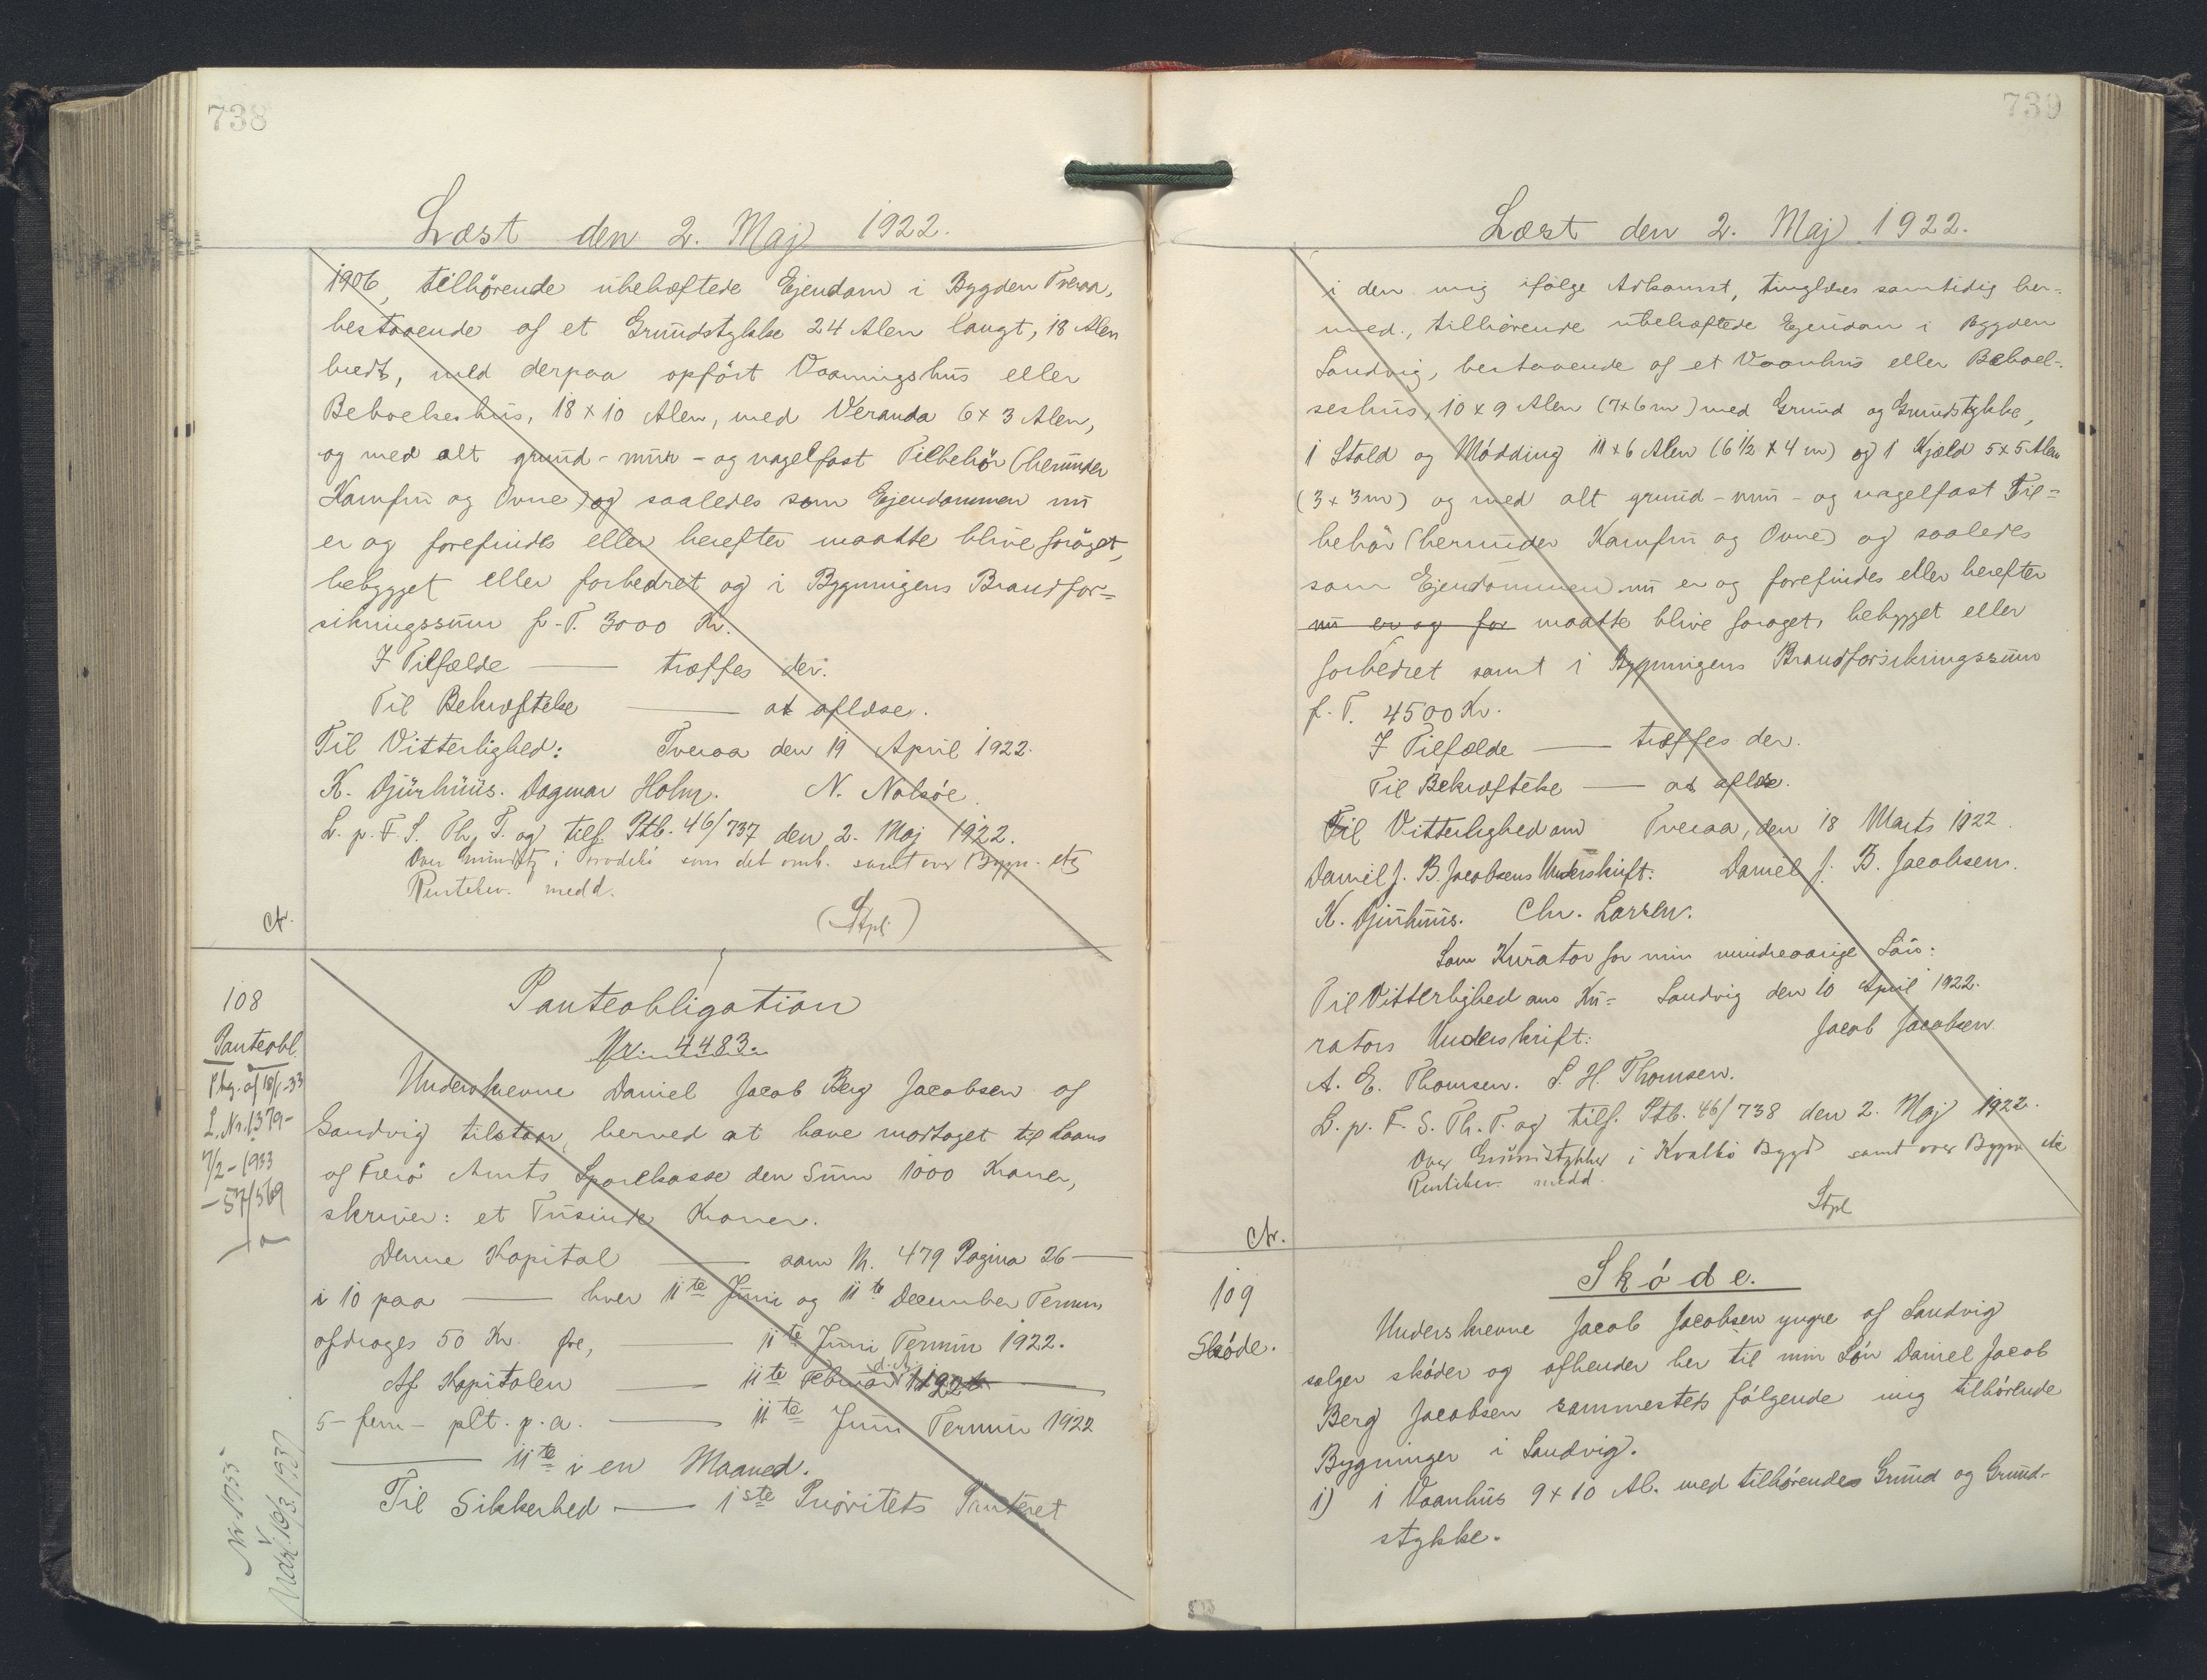 738
Læst den 2. Maj 1922.
1906, tilhørende ubehæftede Ejendom i Bygden Tveraa,
bestaaende af et Grundstykke 24 Alen langt, 18 Alen
bredt, med derpaa opført Vaaningshus eller
Beboelseshus, 18 x 10 Alen, med Veranda 6 x 3 Alen,
og med alt grund- mur- og nagelfast Tilbehør (herunder
Komfur og Ovne) og saaledes som Ejendommen nu
er og forefindes eller herefter maatte blive forøget,
bebygget eller forbedret og i Bygningens Brandfor=
sikringssum p. T. 3000 Kr.
I Tilfælde — træffes der.
Til Bekræftelse — at aflæse.
Til Vitterlighed: Tveraa den 19 April 1922.
K. Djurhuus. Dagmar Holm. N. Nolsøe.
L. p. F. S. Th. T. og tilf. Ptb. 46/737 den 2. Maj 1922.
Over Grundst i Froðebø som det omh. samt over Bygn. etc
Rentebev. medd.
(Stpl.)
108
Panteobl.
Phg. af 18/1-33
L. Nr. 1379-
7/2-1933
-57/569
Panteobligation
Nr. 4483.
Underskrevne Daniel Jacob Berg Jacobsen af
Sandvig tilstaar, herved at have modtaget til Laans
af Færø Amts Sparekasse den Sum 1000 Kroner,
skriver: et Tusinde Kroner.
Denne Kapital — som Nr. 479 Pagina 26 —
i 10 paa — hver 11te Juni og 11te December Termin
afdrages 50 Kr. Øre, — 11te Juni Termin 1922.
Af Kapitalen — 11te Februar 1922 —
5- fem- pCt. p. a. — 11te Juni Termin 1922
— 11te i en Maaned.
Til Sikkerhed — 1ste Prioritets Panteret
739
Læst den 2. Maj 1922.
i den mig ifølge Adkomst, tinglæses samtidig her=
med, tilhørende ubehæftede Ejendom i Bygden
Sandvig, bestaaende af et Vaanhus eller Beboel=
seshus, 10 x 9 Alen (7x6m) med Grund og Grundstykke,
1 Stald og Mødding 11 x 6 Alen (6 1/2 x 4 m) og 1 Kjæld 5x5 Alen
(3 x 3m) og med alt grund- mur- og nagelfast Til=
behør (herunder Komfur og Ovne) og saaledes
som Ejendommen nu er og forefindes eller herefter
nu er og for maatte blive forøget, bebygget eller
forbedret samt i Bygningens Brandforsikringssum
p. T. 4500 Kr.
I Tilfælde — træffes der.
Til Bekræftelse — at aflæse.
Til Vitterlighed om Tveraa, den 18 Marts 1922
Daniel J. B. Jacobsens Underskrift: Daniel J. B. Jacobsen.
K. Djurhuus. Chr. Larsen.
Som Kurator for min mindreaarige Søn:
Til Vitterlighed om Ku= Sandvig den 10 April 1922.
rators Underskrift: Jacob Jacobsen
A. E. Thomsen. S. H. Thomsen.
L. p. F. S. Th. T. og tilf. Ptb. 46/738 den 2. Maj 1922.
Over Grundstykker i Kvalbø Bygd samt over Bygn etc
Rentebev. medd.
Stpl
109
Skøde.
Skøde.
Underskrevne Jacob Jacobsen yngre af Sandvig
sælger skøder og afhender her til min Søn Daniel Jacob
Berg Jacobsen sammesteds følgende mig tilhørende
Bygninger i Sandvig.
1) 1 Vaanhus 9 x 10 Al. med tilhørendes Grund og Grund-
stykke.